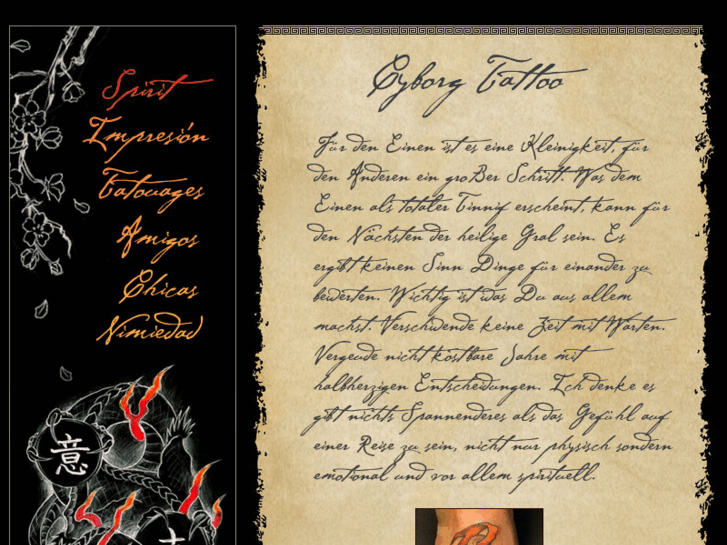 Spirit
Impresión
Tatouages
Amigos
Chicas
Nimiedad
意
Cyborg Tattoo
Für den Einen ist es eine Kleinigkeit, für
den Anderen ein großer Schritt. Was dem
Einen als totaler Tinnif erscheint, kann für
den Nächsten der heilige Gral sein. Es
ergibt keinen Sinn Dinge für einander zu
bewerten. Wichtig ist was Du aus allem
machst. Verschwende keine Zeit mit Warten.
Vergeude nicht kostbare Jahre mit
halbherzigen Entscheidungen. Ich denke es
gibt nichts Spannenderes als das Gefühl auf
einer Reise zu sein, nicht nur physisch sondern
emotional und vor allem spirituell.